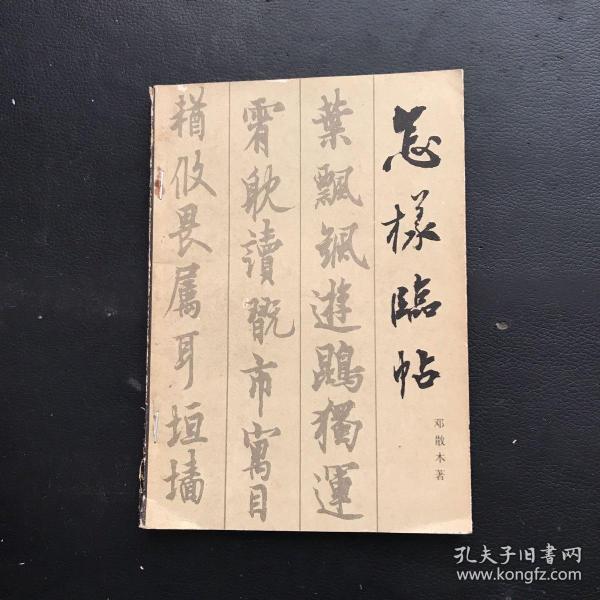 怎樣臨帖
邓散木著
葉飄颻遊鵾獨運
霄耽讀翫市寓目
輶攸畏屬耳垣墻
孔夫子旧書网
www.kongfz.com